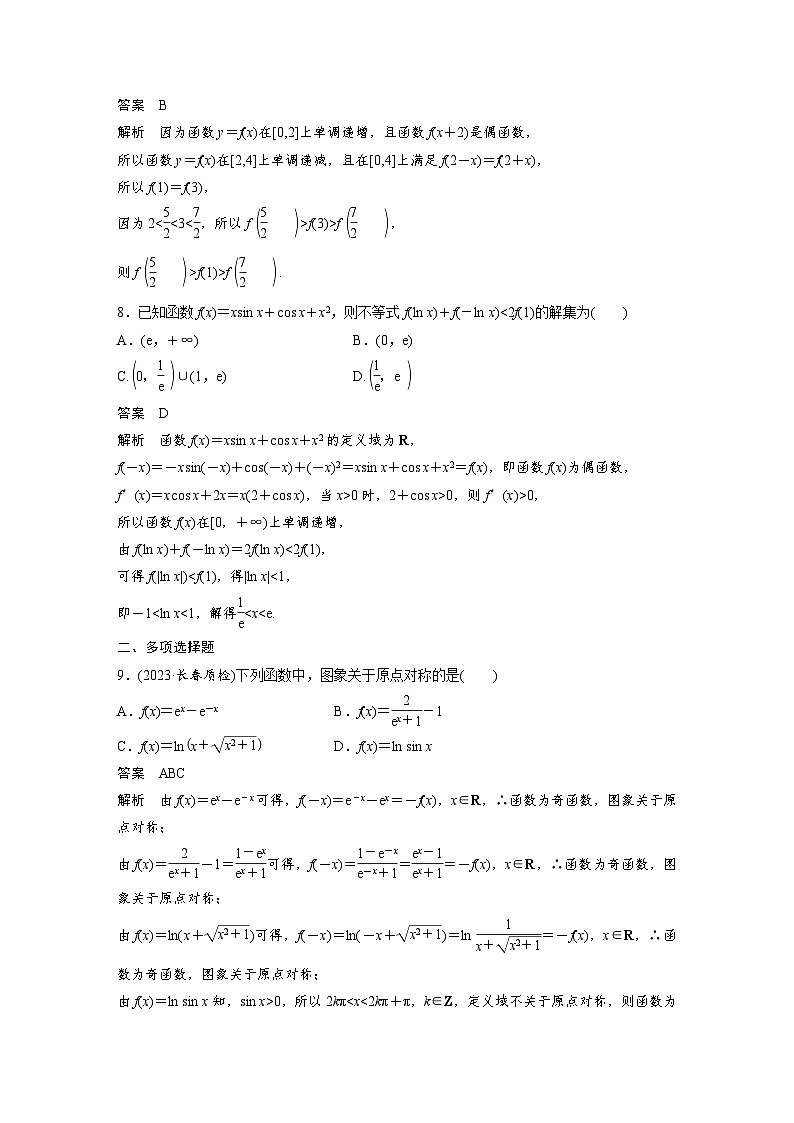 答案　B
解析　因为函数y＝f(x)在[0,2]上单调递增，且函数f(x＋2)是偶函数，
所以函数y＝f(x)在[2,4]上单调递减，且在[0,4]上满足f(2－x)＝f(2＋x)，
所以f(1)＝f(3)，
因为2<5/2<3<7/2，所以f(5/2)>f(3)>f(7/2)，
则f(5/2)>f(1)>f(7/2).
8．已知函数f(x)＝xsin x＋cos x＋x²，则不等式f(ln x)＋f(－ln x)<2f(1)的解集为(　　)
A．(e，＋∞)　B．(0，e)
C.(0，1/e)∪(1，e)　D.(1/e，e)
答案　D
解析　函数f(x)＝xsin x＋cos x＋x²的定义域为R，
f(－x)＝－xsin(－x)＋cos(－x)＋(－x)²＝xsin x＋cos x＋x²＝f(x)，即函数f(x)为偶函数，
f′(x)＝xcos x＋2x＝x(2＋cos x)，当x>0时，2＋cos x>0，则f′(x)>0，
所以函数f(x)在[0，＋∞)上单调递增，
由f(ln x)＋f(－ln x)＝2f(ln x)<2f(1)，
可得f(|ln x|)<f(1)，得|ln x|<1，
即－1<ln x<1，解得1/e<x<e.
二、多项选择题
9．(2023·长春质检)下列函数中，图象关于原点对称的是(　　)
A．f(x)＝eˣ－e⁻ˣ　B．f(x)＝2/(eˣ＋1)－1
C．f(x)＝ln(x＋√(x²＋1))　D．f(x)＝ln sin x
答案　ABC
解析　由f(x)＝eˣ－e⁻ˣ可得，f(－x)＝e⁻ˣ－eˣ＝－f(x)，x∈R，∴函数为奇函数，图象关于原
点对称；
由f(x)＝2/(eˣ＋1)－1＝(1－eˣ)/(eˣ＋1)可得，f(－x)＝(1－e⁻ˣ)/(e⁻ˣ＋1)＝(eˣ－1)/(eˣ＋1)＝－f(x)，x∈R，∴函数为奇函数，图
象关于原点对称；
由f(x)＝ln(x＋√(x²＋1))可得，f(－x)＝ln(－x＋√(x²＋1))＝ln 1/(x＋√(x²＋1))＝－f(x)，x∈R，∴函
数为奇函数，图象关于原点对称；
由f(x)＝ln sin x知，sin x>0，所以2kπ<x<2kπ＋π，k∈Z，定义域不关于原点对称，则函数为